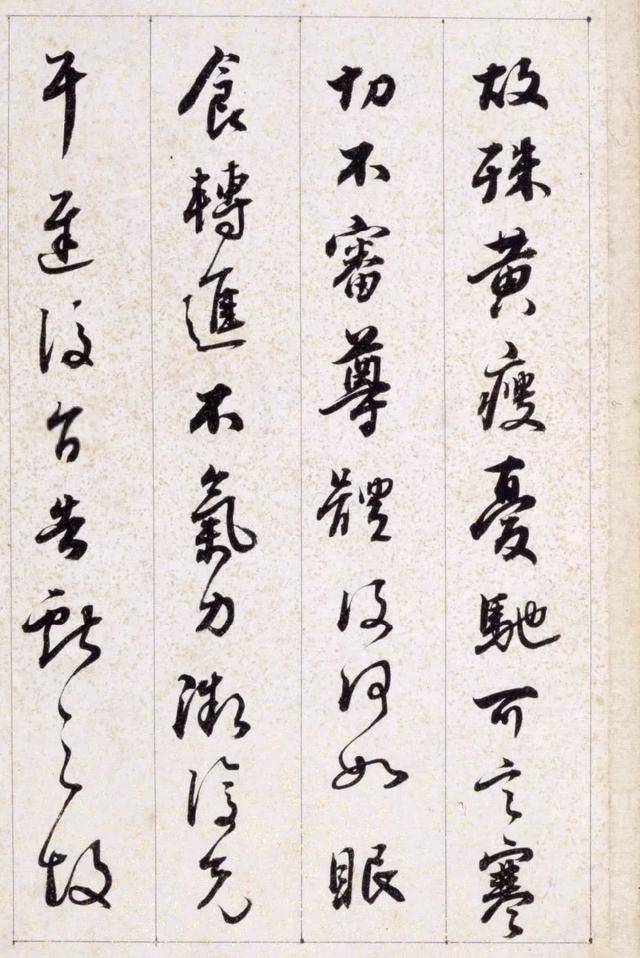 故殊黃瘦憂馳可言寒
切不審尊體復何如眠
食轉進不氣力漸復充
平遲復旨告獻之故